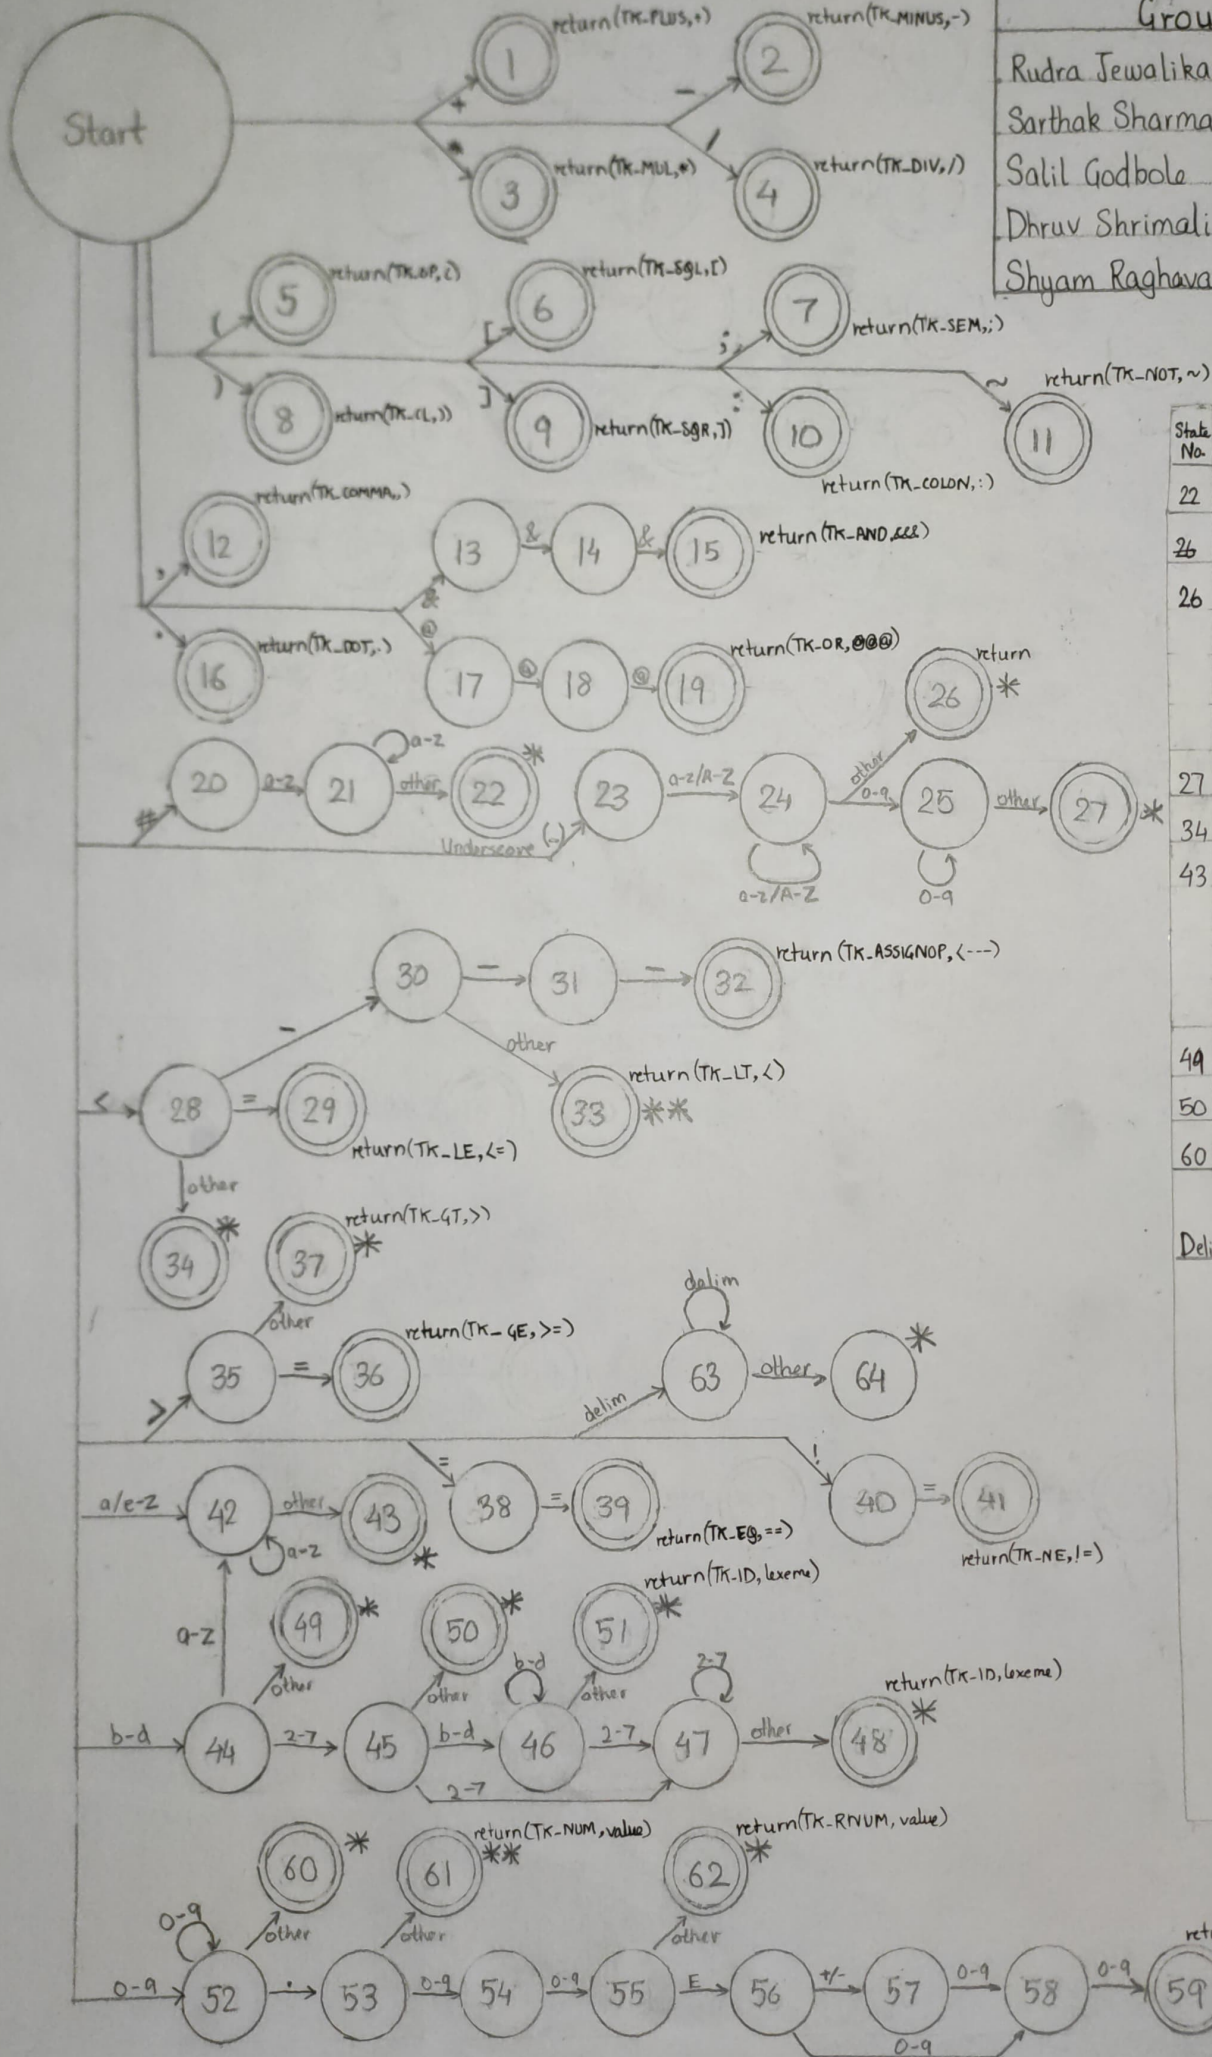 Start
+
1
return(TK_PLUS,+)
-
2
return(TK_MINUS,-)
*
3
return(TK_MUL,*)
/
4
return(TK_DIV,/)
Grou
Rudra Jewalika
Sarthak Sharma
Salil Godbole
Dhruv Shrimali
Shyam Raghava
(
5
[
6
return(TK_SQL,[)
;
7
return(TK_SEM,;)
~
return(TK_NOT,~)
)
8
return(TK_CL,))
]
9
return(TK_SQR,])
:
10
return(TK_COLON,:)
11
State
No.
22
26
26
27
34
43
49
50
60
Deli
,
12
return(TK_COMMA,,)
&
13
&
14
&
15
return(TK_AND,&&&)
.
16
return(TK_DOT,.)
@
17
@
18
@
19
return(TK_OR,@@@)
return
26
*
#
20
a-z
21
a-z
other
22
*
Underscore (_)
23
a-z/A-Z
24
a-z/A-Z
other
0-9
25
0-9
other
27
*
<
28
-
30
-
31
-
32
return(TK_ASSIGNOP,<---)
other
33
**
return(TK_LT,<)
=
29
return(TK_LE,<=)
other
34
*
37
*
return(TK_GT,>)
>
35
other
=
36
return(TK_GE,>=)
delim
63
delim
other
64
*
=
38
=
39
return(TK_EQ,==)
!
40
=
41
return(TK_NE,!=)
a/e-z
42
a-z
other
43
*
a-z
b-d
44
other
49
*
2-7
45
other
50
*
b-d
46
b-d
other
51
*
return(TK_ID,lexeme)
2-7
2-7
47
2-7
other
48
*
return(TK_ID,lexeme)
0-9
52
0-9
other
60
*
.
53
other
61
**
return(TK_NUM,value)
0-9
54
0-9
55
other
62
*
return(TK_RNUM,value)
E
56
+/-
57
0-9
58
0-9
0-9
59
ret